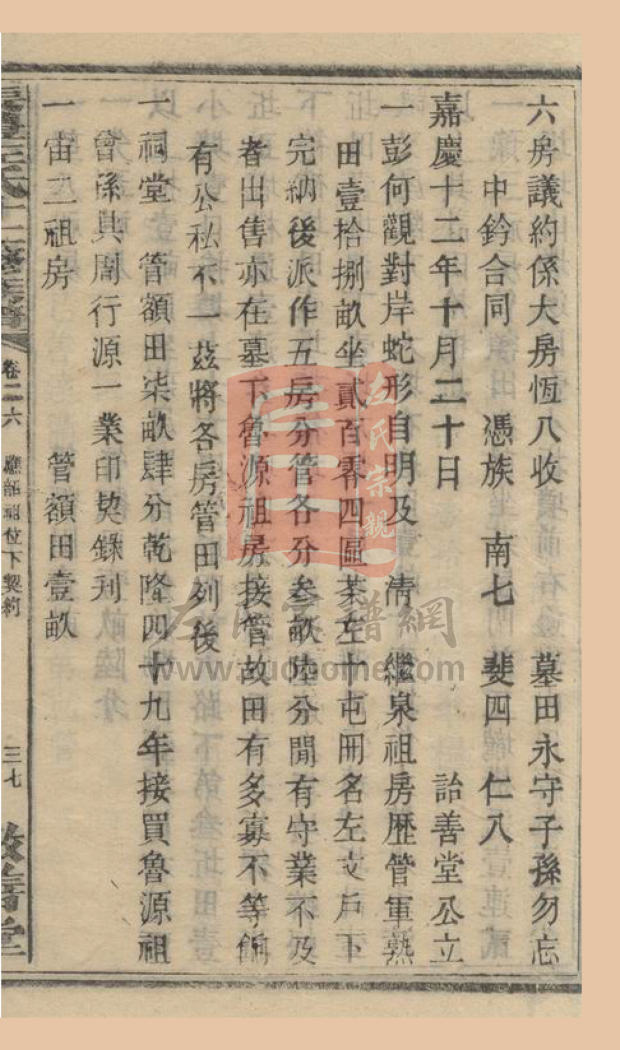 六房議約係大房恆八收　墓田永守子孫勿忘
中鈐合同　憑族　南七　斐四　仁八
嘉慶十二年十月二十日　詒善堂公立
一彭何觀對岸蛇形自明及　清　繼泉祖房歷管軍熟
田壹拾捌畝坐貳百零四區茶左十屯冊名左文戶下
完納後派作五房分管各分叁畝陸分閒有守業不及
者出售亦在墓下魯源祖房接管故田有多寡不等餉
有公私不一茲將各房管田列後
一祠堂　管額田柒畝肆分乾隆四十九年接買魯源祖
會係與閣行源一業印契錄刋
一宙二祖房　管額田壹畝
卷二六　應韶祖位下契約　三七
左氏宗親
左氏宗譜網
www.zuohome.com